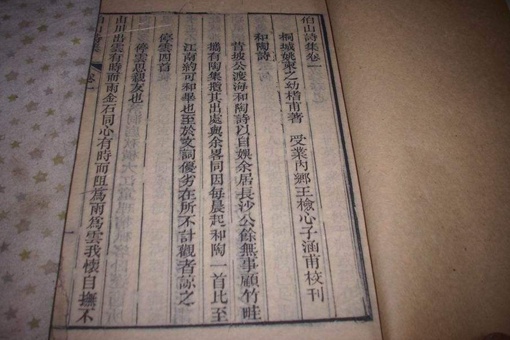 伯山詩集卷一
桐城姚柬之幼楷甫著 受業內鄉王檢心子涵甫校刊
和陶詩
昔坡公渡海和陶詩以自娛余居長沙公餘無事顧竹畦
攜有陶集撿其出處與余畧同因每晨起和陶一首比至
江南約可和畢也至於文詞優劣在所不計觀者諒之
停雲四首
停雲思親友也
山川出雲有時而雨金石同心有時而阻為雨為雲我懷自撫不
伯山詩集 卷一